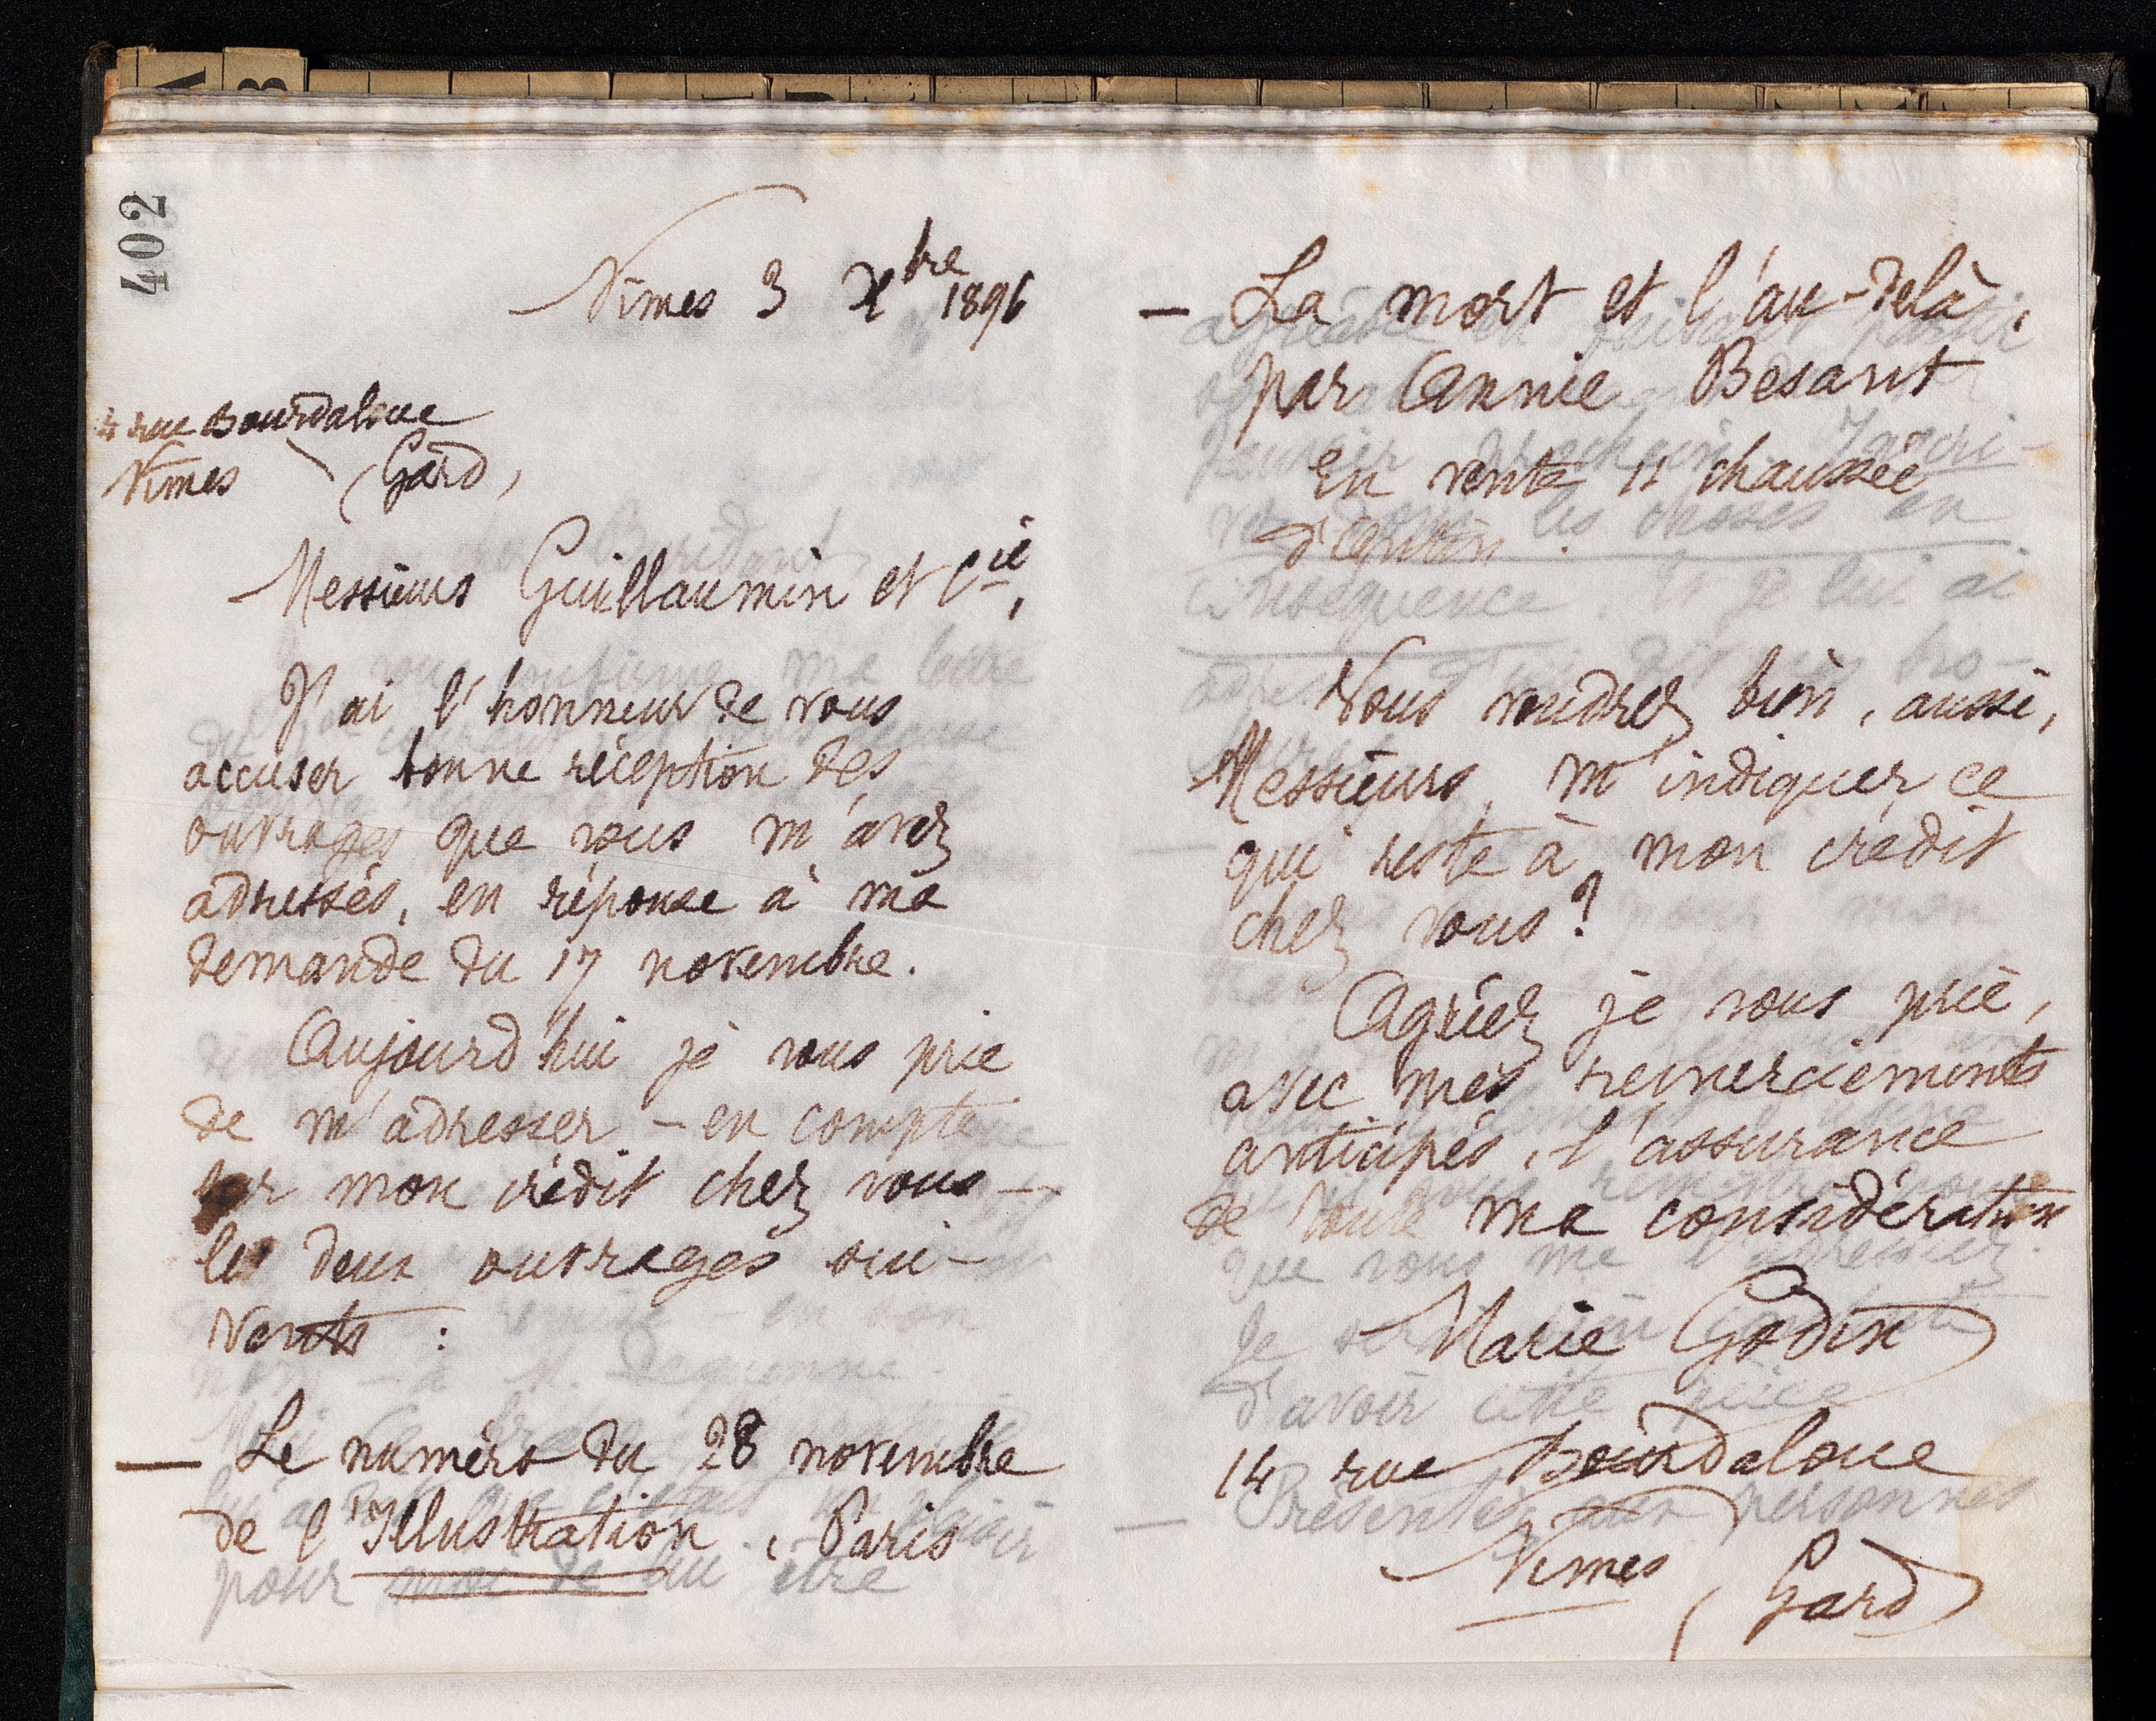 402
Nîmes 3 Xbre 1896
4 rue Bourdaloue
Nîmes (Gard)
Messieurs Guillaumin et Cie,
J'ai l'honneur de vous
accuser bonne réception des
ouvrages que vous m'avez
adressés, en réponse à ma
demande du 17 novembre.
Aujourd'hui je vous prie
de m'adresser – en compte
sur mon crédit chez vous –
les deux ouvrages sui-
vants :
— Le numéro du 28 novembre
de l'Illustration, Paris
— La mort et l'au-delà,
par Annie Besant
En vente 11 chaussée
d'Antin.
Vous voudrez bien, aussi,
Messieurs, m'indiquer ce
qui reste à mon crédit
chez vous?
Agréez je vous prie,
avec mes remerciements
anticipés, l'assurance
de toute ma considération
Marie Godin
14 rue Bourdaloue
Nîmes (Gard)